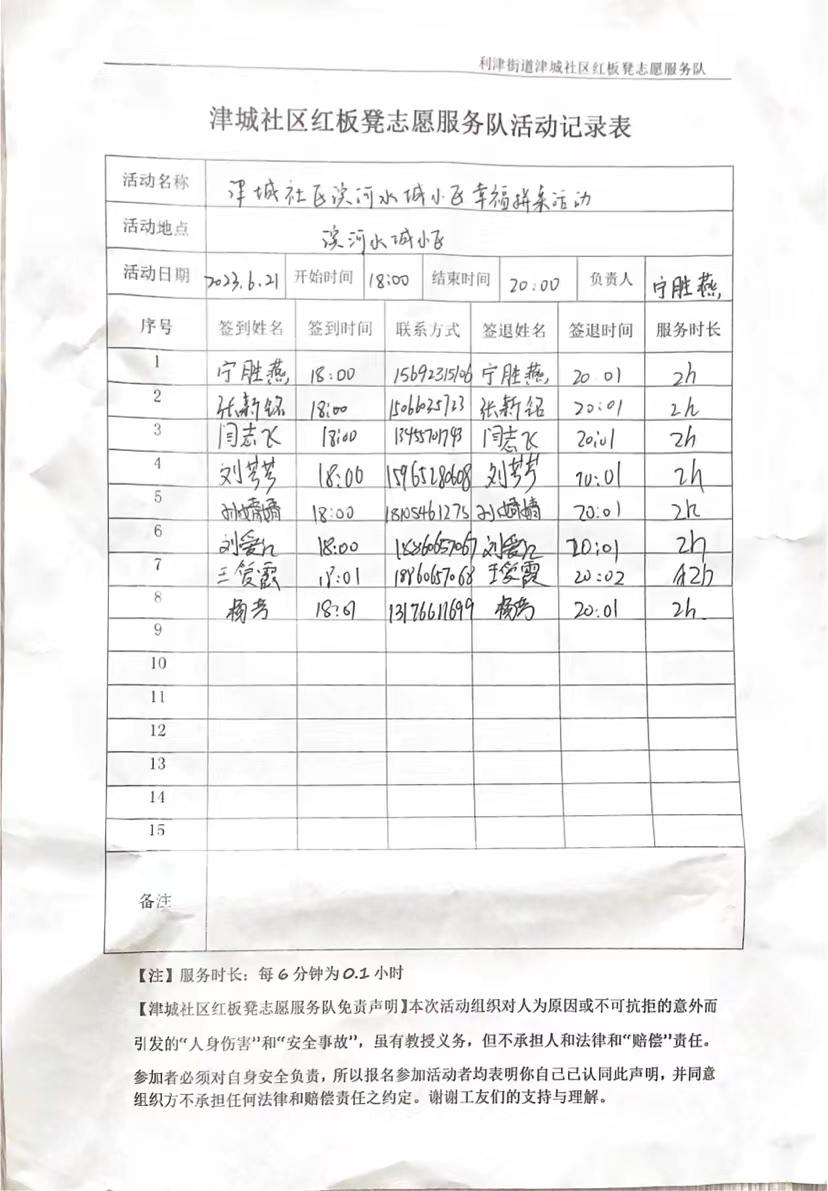 利津街道津城社区红板凳志愿服务队
津城社区红板凳志愿服务队活动记录表
活动名称 津城社区滨河水城小区幸福拼桌活动
活动地点 滨河水城小区
活动日期 2023.6.21 开始时间 18:00 结束时间 20:00 负责人 宁胜燕
序号 签到姓名 签到时间 联系方式 签退姓名 签退时间 服务时长
1 宁胜燕 18:00 15692315106 宁胜燕 20:01 2h
2 张新铭 18:00 15066025723 张新铭 20:01 2h
3 闫志飞 18:00 13455701743 闫志飞 20:01 2h
4 刘芳芳 18:00 15965280608 刘芳芳 20:01 2h
5 孙嫱嫱 18:00 18105461275 孙嫱嫱 20:01 2h
6 刘爱 18:00 18860657067 刘爱 20:01 2h
7 王俊霞 18:01 18860657068 王俊霞 20:02 2h
8 杨芳 18:01 13176611699 杨芳 20:01 2h
9
10
11
12
13
14
15
备注
【注】服务时长：每6分钟为0.1小时
【津城社区红板凳志愿服务队免责声明】本次活动组织对人为原因或不可抗拒的意外而
引发的“人身伤害”和“安全事故”，虽有教授义务，但不承担人和法律和“赔偿”责任。
参加者必须对自身安全负责，所以报名参加活动者均表明你自己已认同此声明，并同意
组织方不承担任何法律和赔偿责任之约定。谢谢工友们的支持与理解。